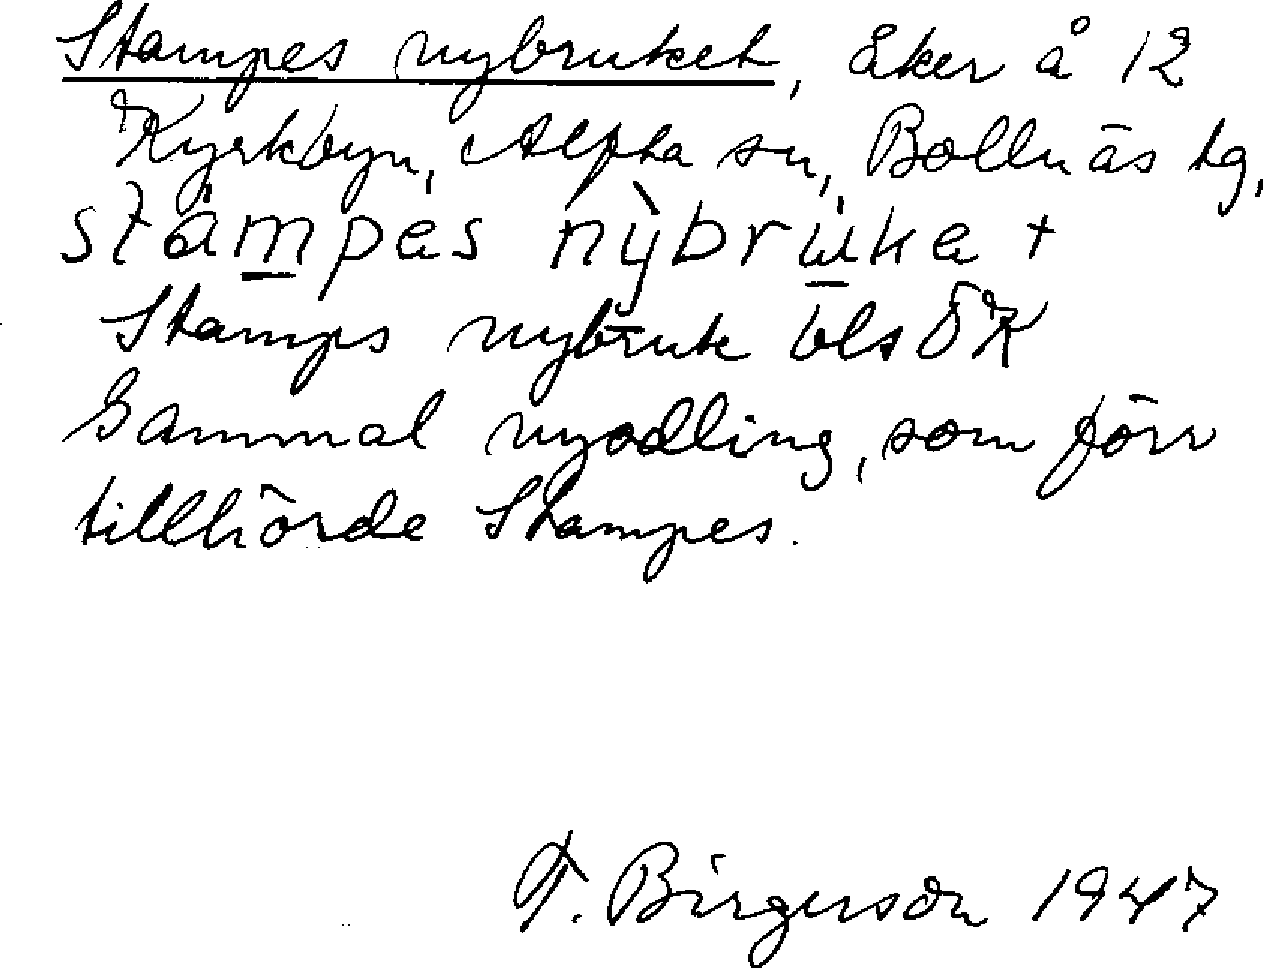 Stampes nybruket, åker å 12
Kyrkbyn, Alfta sn, Bollnäs tg,
stámpas nỳbruka +
Stamps nybruk
Gammal nyodling, som förr
tillhörde Stampes.
F. Birgerson 1947